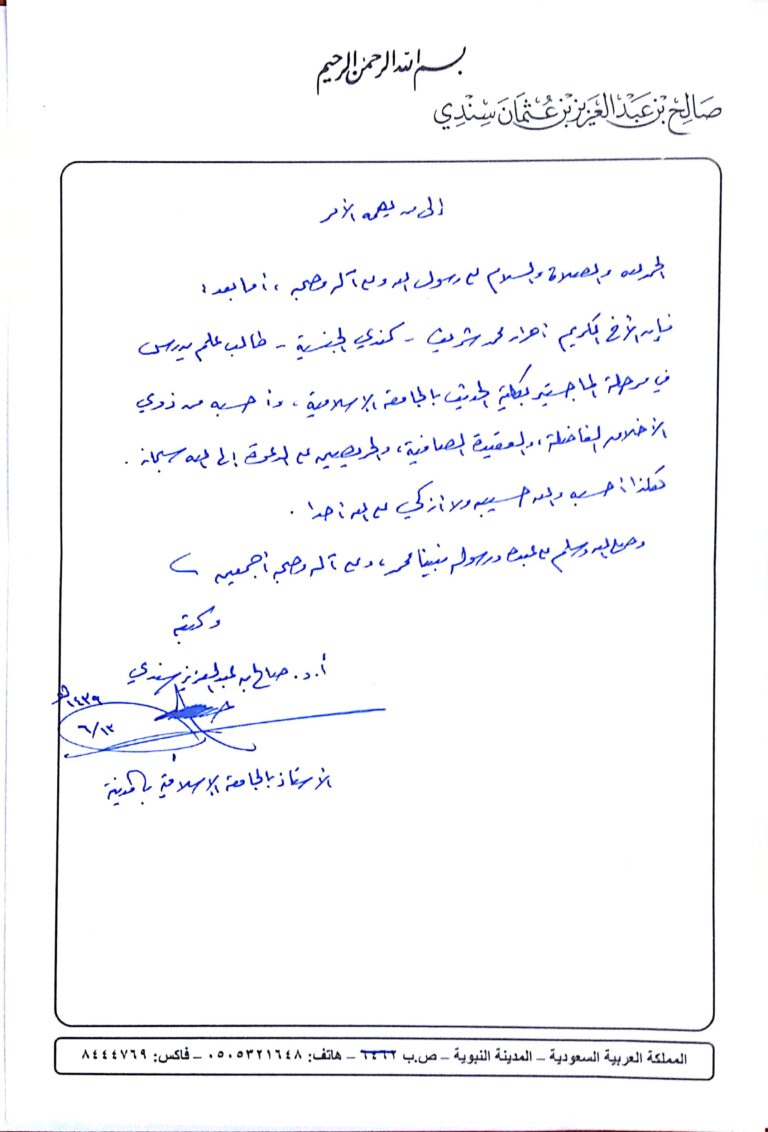 بسم الله الرحمن الرحيم
صَالِح بْن عَبْد العَزِيز بْن عُثْمَان سِنْدِي
إلى من يهمه الأمر
الحمد لله والصلاة والسلام على رسول الله وعلى آله وصحبه ، أما بعد :
فإن الأخ الكريم محمد شريف - كندي الجنسية - طالب علم يدرس
في مرحلة الماجستير بكلية الحديث بالجامعة الإسلامية ، وأحسبه من ذوي
الأخلاق الفاضلة ، والعقيدة الصافية ، والحريصين على الدعوة إلى الله سبحانه .
هكذا أحسبه والله حسيبه ولا أزكي على الله أحدا .
وصلى الله وسلم على عبده ورسوله نبينا محمد ، وعلى آله وصحبه أجمعين
وكتبه
أ.د. صالح بن عبد العزيز سندي
١٤٣٩هـ
٦/١٣
الأستاذ بالجامعة الإسلامية بالمدينة
المملكة العربية السعودية – المدينة النبوية – ص.ب ٦٤٦٢ – هاتف: ٠٥٠٥٣٢١٦٤٨ – فاكس: ٨٤٤٤٧٦٩